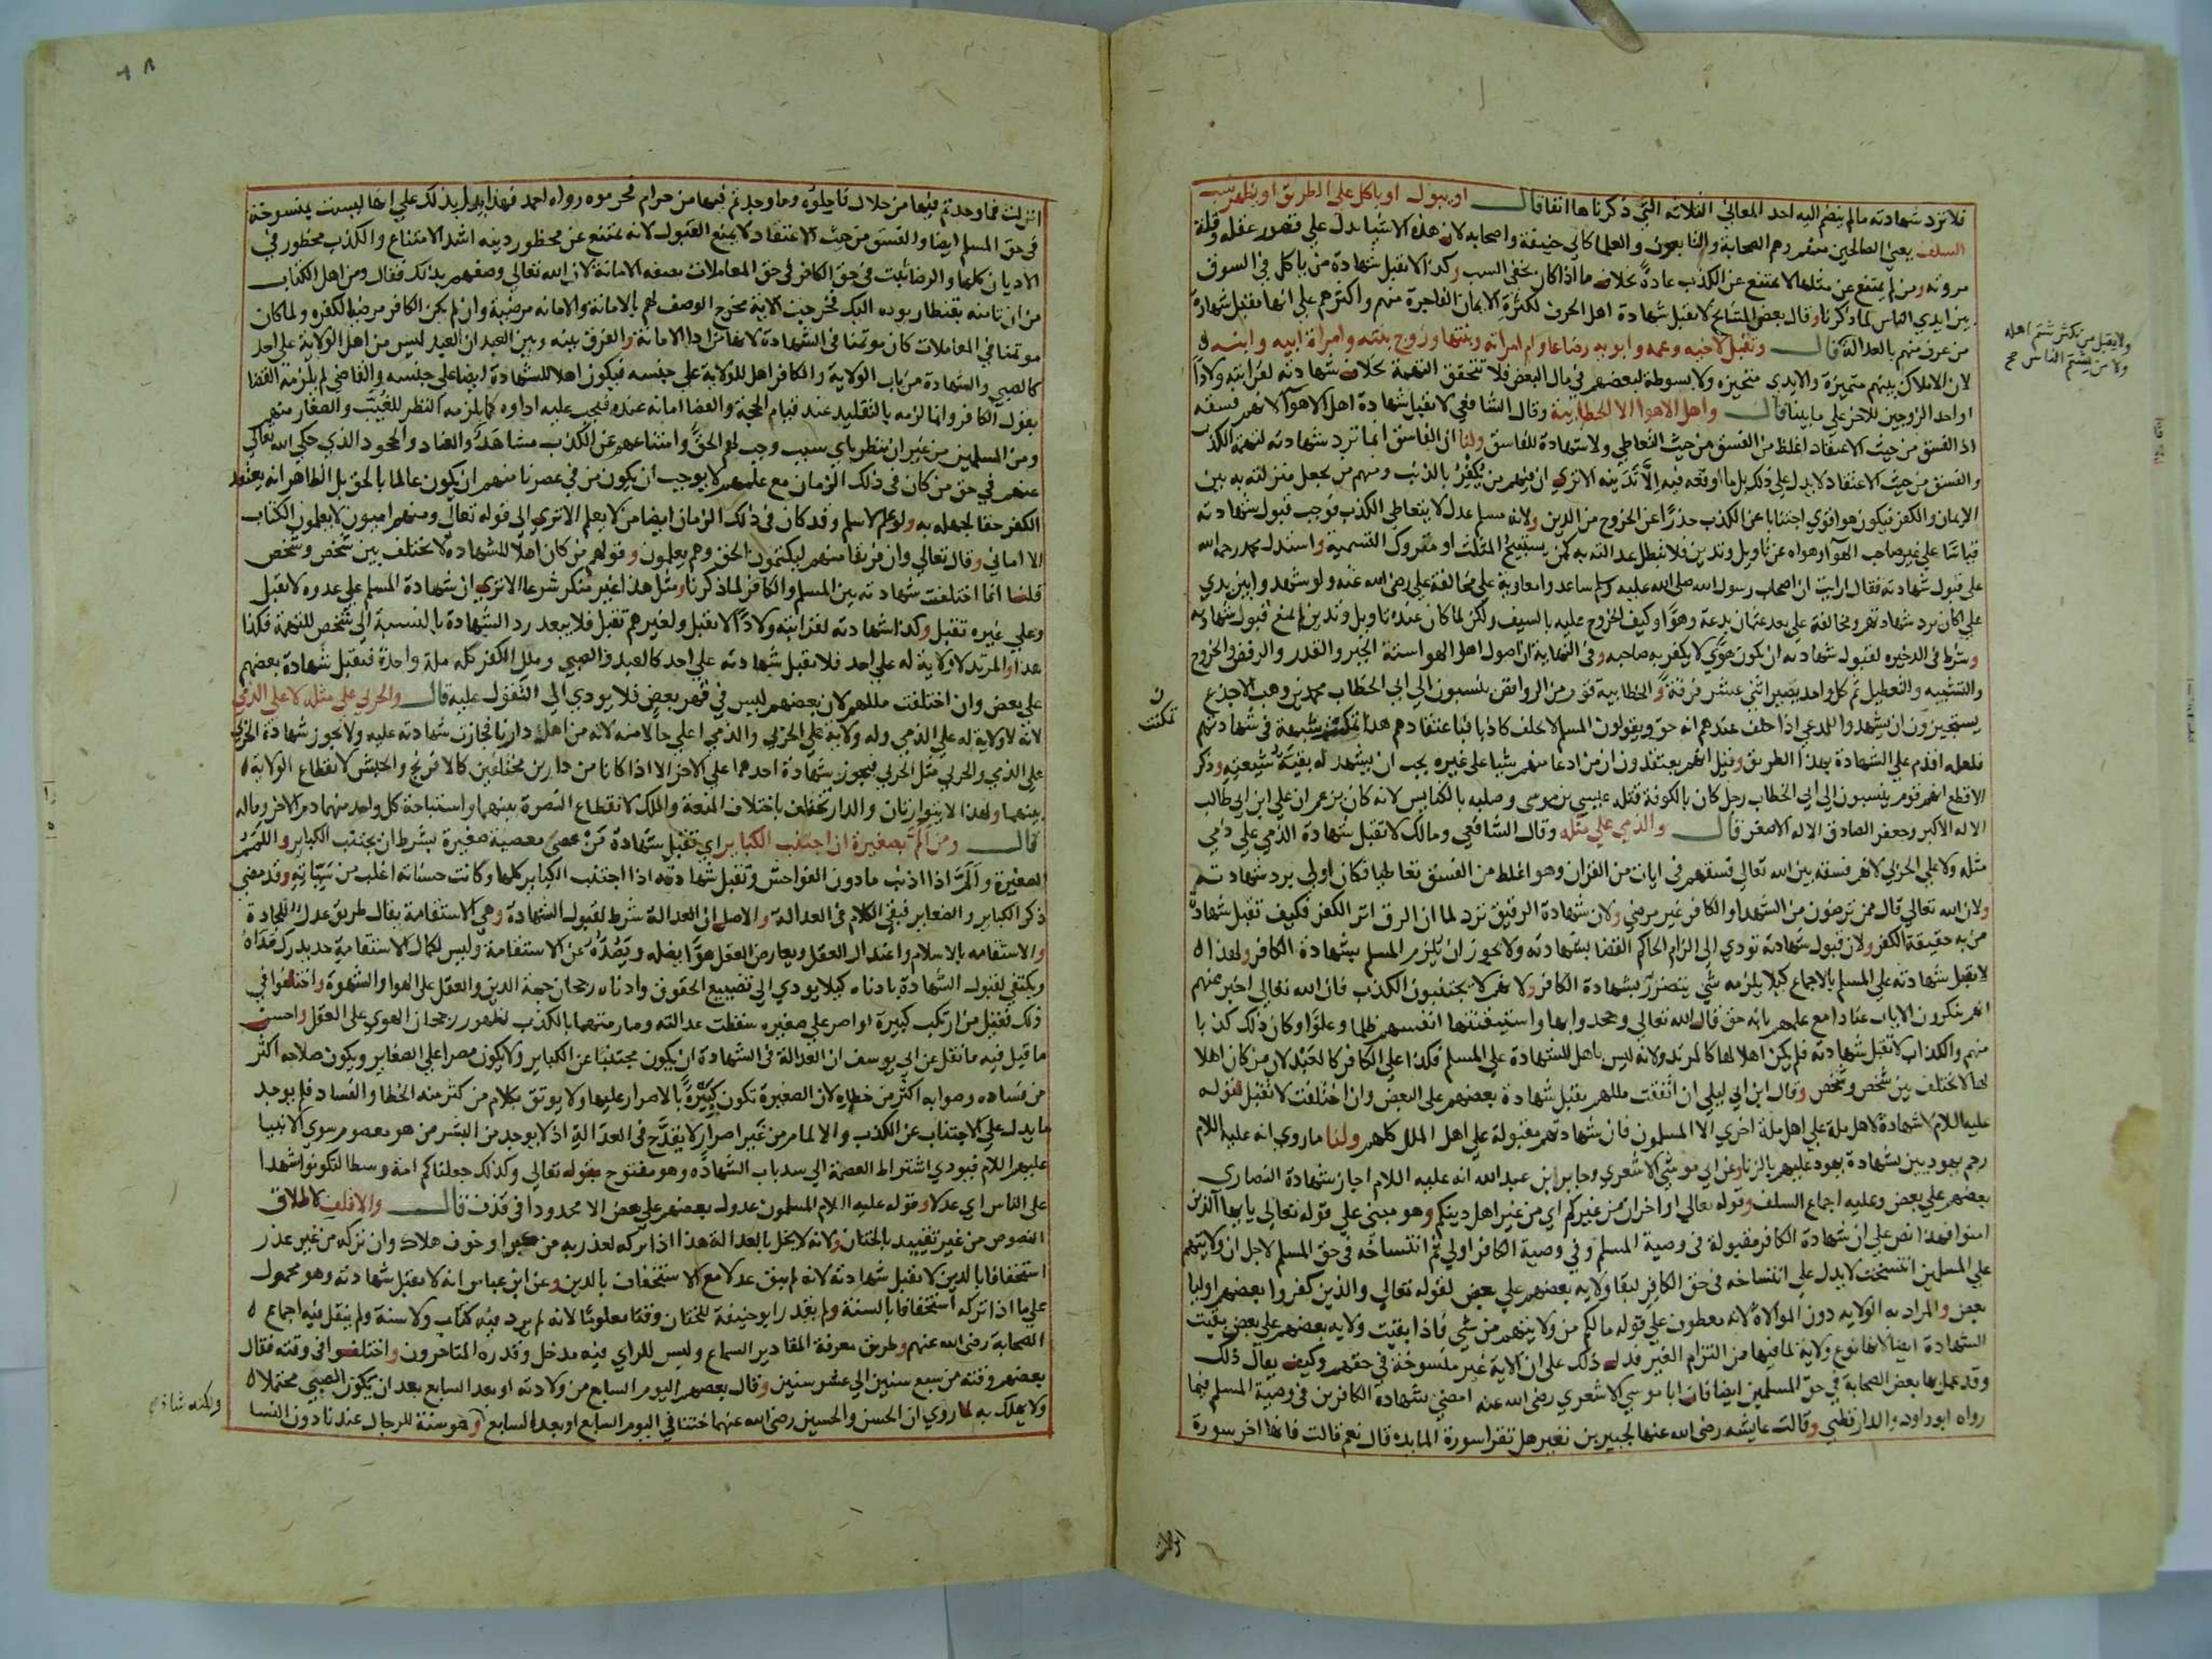 فلا ترد شهادته ما لم ينضم اليه احد المعاني الثلاثة التي ذكرناها انفا قال او يبول او ياكل على الطريق او يظهر سب
السلف يعني الصالحين منهم وهم الصحابة والتابعون والعلما كابي حنيفة واصحابه لان هذه الاشيا تدل على قصور عقله وقلة
مروته ومن لم يمتنع عن مثلها لا يمتنع عن الكذب عادة بخلاف ما اذا كان يخفي السب وكذا لا تقبل شهادة من ياكل في السوق
بين ايدي الناس لما ذكرنا وقال بعض المشايخ لا تقبل شهادة اهل الحرف لكثرة الايمان الفاجرة منهم واكثرهم على انها تقبل شهادة
من عرف منهم بالعدالة قال وتقبل لاخيه وعمه وابويه رضاعا وام امراته وبنتها وزوج بنته وامراة ابيه وابنه
لان الاملاك بينهم متميزة والايدي متحيزه ولا بسوطة لبعضهم في مال البعض فلا تتحقق التهمة بخلاف شهادته لقرابته ولادا
او احد الزوجين للاخر على ما بينا قال واهل الاهوا الا الخطابية وقال الشافعي لا تقبل شهادة اهل الاهوا لانهم فسقة
اذ الفسق من حيث الاعتقاد اغلظ من الفسق من حيث التعاطي ولا شهادة للفاسق ولنا ان الفاسق انما ترد شهادته لتهمة الكذب
والفسق من حيث الاعتقاد لا يدل على ذلك بل ما اوقعه فيه الا تدينه الا ترى ان فيهم من يكفر بالذنب ومنهم من يجعل منزلته به بين
الايمان والكفر فيكون هو اقوي اجتنابا عن الكذب حذرا عن الخروج من الدين ولانه مسلم عدل لا يتعاطي الكذب فوجب قبول شهادته
قياسا على غير صاحب الهوا وهواه عن تاويل وتدين فلا تبطل عدالته به كمن يستبيح المثلث او متروك التسمية واستدل محمد رحمه الله
على قبول شهادته فقال ارايت ان اصحاب رسول الله صلى الله عليه وسلم ساعدوا معاوية على مخالفة علي رضي الله عنه ولو شهدوا بين يدي
علي اكان يرد شهادتهم ومخالفة علي بعد عثمان بدعة وهوا وكيف الخروج عليه بالسيف ولكن لما كان عنده تاويل وتدين لم يمنع قبول شهادته
وشرط في الذخيرة لقبول شهادته ان يكون هوي لا يكفر به صاحبه وفي النهاية ان اصول اهل الهوا ستة الجبر والقدر والرفض والخروج
والتشبيه والتعطيل ثم كل واحد يصير اثني عشر فرقة والخطابية قوم من الروافض ينسبون الي ابي الخطاب محمد بن وهب الاجدع
يستجيزون ان يشهدوا للمدعي اذا حلف عندهم انه حق ويقولون المسلم لا يحلف كاذبا فباعتقادهم هذا تمكنت شبهة في شهادتهم
فلعله اقدم على الشهادة بهذا الطريق وقيل انهم يعتقدون ان من ادعا منهم شيا على غيره يجب ان يشهد له بقية شيعته وذكر
الاقطع انهم قوم ينسبون الى ابي الخطاب رجل كان بالكوفة قتله عيسي بن موسى وصلبه بالكنايس لانه كان يزعم ان علي ابن ابي طالب
الاله الاكبر وجعفر الصادق الاله الاصغر قال والذمي على مثله وقال الشافعي ومالك لا تقبل شهادة الذمي على ذمي
مثله ولا على الحربي لانهم فسقة بين الله تعالى فسقهم في ايات من القران وهو اغلظ من الفسق تعاطيا فكان اولى برد شهادتهم
ولان الله تعالى قال ممن ترضون من الشهدا والكافر غير مرضي ولان شهادة الرقيق ترد لما ان الرق اثر الكفر فكيف تقبل شهادة
من به حقيقة الكفر ولان قبول شهادته تودي الى الزام الحاكم القضا بشهادته ولا يجوز ان يلزم المسلم بشهادة الكافر ولهذا
لا تقبل شهادته على المسلم بالاجماع كيلا يلزمه شي يتضرر بشهادة الكافر ولانهم لا يجتنبون الكذب فان الله تعالى اخبر عنهم
انهم ينكرون الايات عنادا مع علمهم بانه حق قال الله تعالى وجحدوا بها واستيقنتها انفسهم ظلما وعلوا وكان ذلك كذبا
منهم والكذاب لا تقبل شهادته فلم يكن اهلا لها كالمرتد ولانه ليس باهل للشهادة على المسلم فكذا على الكافر كالعبد لان من كان اهلا
لها لا تختلف بين شخص وشخص وقال ابن ابي ليلى ان اتفقت مللهم يقبل شهادة بعضهم على البعض وان اختلفت لا تقبل لقوله
عليه اللام لا شهادة لاهل ملة على اهل ملة اخرى الا المسلمون فان شهادتهم مقبولة على اهل الملل كلهم ولنا ما روي انه عليه اللام
رجم يهوديين بشهادة يهود عليهم بالزنا وعن ابي موسي الاشعري وجابر ابن عبد الله انه عليه اللام اجاز شهادة النصارى
بعضهم على بعض وعليه اجماع السلف وقوله تعالى او اخران من غيركم اي من غير اهل دينكم وهو مبني على قوله تعالى يايها الذين
امنوا فهذا نص على ان شهادة الكافر مقبولة في وصية المسلم وفي وصية الكافر اولى ثم انتساخه في حق المسلم لاجل ان ولايتهم
على المسلمين انتسخت لا يدل على انتساخه في حق الكافر لبقا ولاية بعضهم على بعض لقوله تعالى والذين كفروا بعضهم اوليا
بعض والمراد به الولاية دون الموالاة لانه معطوف على قوله ما لكم من ولايتهم من شي فاذا بقيت ولاية بعضهم على بعض بقيت
الشهادة ايضا لانها نوع ولاية لما فيها من التزام الغير فدل ذلك على ان الاية غير منسوخة في حقهم وكيف يقال ذلك
وقد عمل بها بعض الصحابة في حق المسلمين ايضا فان ابا موسي الاشعري رضي الله عنه امضي شهادة الكافرين في وصية المسلم فيما
رواه ابو داود والدارقطني وقالت عايشه رضي الله عنها لجبير بن نفير هل تقرا سورة المايدة قال نعم قالت فانها اخر سورة
ولا يقبل من يكثر شتم اهله
ولا من يشتم الناس صح
ن
تمكنت
انزلت
انزلت فما وجدتم فيها من حلال فاحلوه وما وجدتم فيها من حرام فحرموه رواه احمد فهذا يدل بذلك على انها ليست بمنسوخة
في حق المسلم ايضا والفسق من حيث الاعتقاد لا يمنع القبول لانه يمتنع عن محظور دينه اشد الامتناع والكذب محظور في
الاديان كلها والرضا ثبت في حق الكافر في حق المعاملات بصفة الامانة لان الله تعالى وصفهم بذلك فقال ومن اهل الكتاب
من ان تامنه بقنطار يوده اليك فخرجت الاية مخرج الوصف لهم بالامانة والامانه مرضية وان لم يكن الكافر مرضيا لكفره ولما كان
موتمنا في المعاملات كان موتمنا في الشهادة لانها من ادا الامانة والفرق بينه وبين العبد ان العبد ليس من اهل الولاية على احد
كالصبي والشهادة من باب الولاية والكافر اهل للولاية على جنسه فيكون اهلا للشهادة ايضا على جنسه والقاضي لم يلزمه القضا
بقول الكافر وانما لزمه بالتقليد عند قيام الحجة والقضا امانه عنده فيجب عليه اداوه كما يلزمه النظر للغيب والصغار منهم
ومن المسلمين من غير ان ينظر باي سبب وجب لهم الحق وامتناعهم عن الكذب مشاهد والعناد والجحود الذي حكى الله تعالى
عنهم في حق من كان في ذلك الزمان مع علمهم لا يوجب ان يكون من في عصرنا منهم ان يكون عالما بالحق بل الظاهر انه يعتقد
الكفر حقا لجهله به ولو علم لاسلم وقد كان في ذلك الزمان ايضا من لا يعلم الا ترى الى قوله تعالى ومنهم اميون لا يعلمون الكتاب
الا اماني وقال تعالى وان فريقا منهم ليكتمون الحق وهم يعلمون وقولهم من كان اهلا للشهادة لا يختلف بين شخص وشخص
قلنا انما اختلفت شهادته بين المسلم والكافر لما ذكرنا ومثل هذا غير منكر شرعا الا ترى ان شهادة المسلم على عدوه لا تقبل
وعلى غيره تقبل وكذا شهادته لقرابته ولادا لا تقبل ولغيرهم تقبل فلا يبعد رد الشهادة بالنسبة الى شخص للتهمة فكذا
هذا والمرتد لا ولاية له على احد فلا تقبل شهادته على احد كالعبد والصبي وملل الكفر كله ملة واحدة فتقبل شهادة بعضهم
على بعض وان اختلفت مللهم لان بعضهم ليس في قهر بعض فلا يودي الى التقول عليه قال والحربي على مثله لا على الذمي
لانه لا ولاية له على الذمي وله ولاية على الحربي والذمي اعلى حالا منه لانه من اهل دارنا فجازت شهادته عليه ولا تجوز شهادة الحربي
على الذمي والحربي مثل الحربي فيجوز شهادة احدهما على الاخر الا اذا كانا من دارين مختلفين كالافرنج والحبش لانقطاع الولاية
بينهما ولهذا لا يتوارثان والدار تختلف باختلاف المنعة والملك لانقطاع النصرة بينهما واستباحة كل واحد منهما دم الاخر وماله
قال ومن الم بصغيرة ان اجتنب الكباير اي تقبل شهادة من عصى معصية صغيرة بشرط ان يجتنب الكباير واللمم
الصغيرة والم اذا اذنب ما دون الفواحش وتقبل شهادته اذا اجتنب الكباير كلها وكانت حسناته اغلب من سيياته وقد مضى
ذكر الكباير والصغاير فبقى الكلام في العدالة والاصل ان العدالة شرط لقبول الشهادة وهي الاستقامة يقال طريق عدل للجادة
والاستقامه بالاسلام واعتدال العقل ويعارض العقل هوا يضله ويصده عن الاستقامة وليس لكمال الاستقامة حد يدرك مداه
ويكتفي لقبول الشهادة بادناه كيلا يودي الى تضييع الحقوق وادناه رجحان جهة الدين والعقل على الهوا والشهوة واختلفوا في
ذلك فقيل من ارتكب كبيرة او اصر على صغيره سقطت عدالته وصار متهما بالكذب لظهور رجحان الهوى على العقل واحسن
ما قيل فيه ما نقل عن ابي يوسف ان العدالة في الشهادة ان يكون مجتنبا عن الكباير ولا يكون مصرا على الصغاير ويكون صلاحه اكثر
من فساده وصوابه اكثر من خطايه لان الصغيرة تكون كبيرة بالاصرار عليها ولا يوثق بكلام من كثر منه الخطا والفساد فلم يوجد
ما يدل على الاجتناب عن الكذب والالمام من غير اصرار لا يقدح في العدالة اذ لا يوجد من البشر من هو معصوم سوى الانبيا
عليهم اللام فيودي اشتراط العصمة الى سد باب الشهادة وهو مفتوح بقوله تعالى وكذلك جعلناكم امة وسطا لتكونوا شهدا
على الناس اي عدلا وقوله عليه اللام المسلمون عدول بعضهم على بعض الا محدودا في قذف قال والاقلف لاطلاق
النصوص من غير تقييد بالختان ولانه لا يخل بالعدالة هذا اذا تركه لعذر به من كبر او خوف هلاك وان تركه من غير عذر
استخفافا بالدين لا تقبل شهادته لانه لم يبق عدلا مع الاستخفاف بالدين وعن ابن عباس انه لا تقبل شهادته وهو محمول
على ما اذا تركه استخفافا بالسنة ولم يقدر ابو حنيفة للختان وقتا معلوما لانه لم يرد فيه كتاب ولا سنة ولم ينقل فيه اجماع
الصحابة رضي الله عنهم وطريق معرفة المقادير السماع وليس للراي فيه مدخل وقدره المتاخرون واختلفوا في وقته فقال
بعضهم وقته من سبع سنين الى عشر سنين وقال بعضهم اليوم السابع من ولادته او بعد السابع بعد ان يكون الصبي محتملا
ولا يهلك به لما روي ان الحسن والحسين رضي الله عنهما ختنا في اليوم السابع او بعد السابع وهو سنة للرجال عندنا دون النسا
ولكنه شاذ